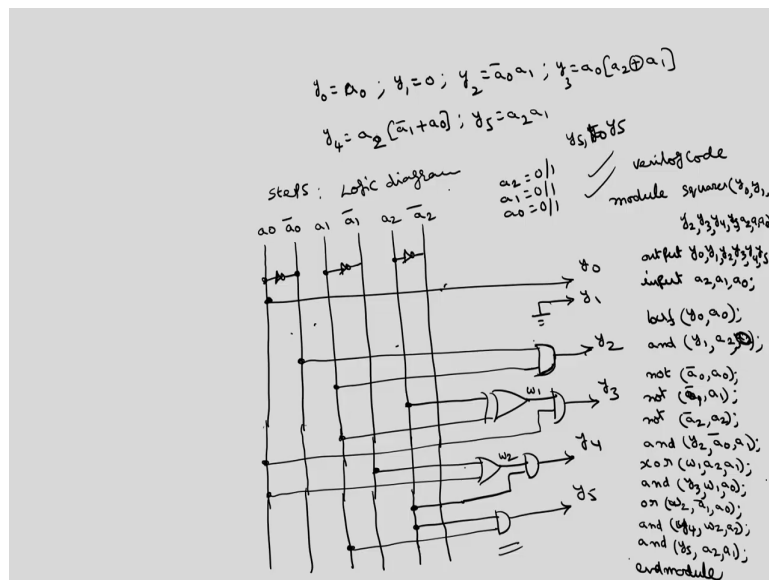 y₀ = a₀ ; y₁ = 0 ; y₂ = a̅₀ a₁ ; y₃ = a₀ [a₂ ⊕ a₁]
y₄ = a₂ [a̅₁ + a₀] ; y₅ = a₂ a₁
y₅, to y₅
steps : Logic diagram
a₂ = 0/1
a₁ = 0/1
a₀ = 0/1
a0 a̅0 a1 a̅1 a2 a̅2
y0
y1
y2
w1
y3
w2
y4
y5
verilog code
module squares(y₀,y₁,
y₂,y₃,y₄,y₅,a₂,a₁,a₀
output y₀,y₁,y₂,y₃,y₄,y₅
input a₂,a₁,a₀;
buf (y₀,a₀);
and (y₁,a₂,
not (a̅₀,a₀);
not (a̅₁,a₁);
not (a̅₂,a₂);
and (y₂,a̅₀,a₁);
xor (w₁,a₂,a₁);
and (y₃,w₁,a₀);
or (w₂,a̅₁,a₀);
and (y₄,w₂,a₂);
and (y₅,a₂,a₁);
endmodule